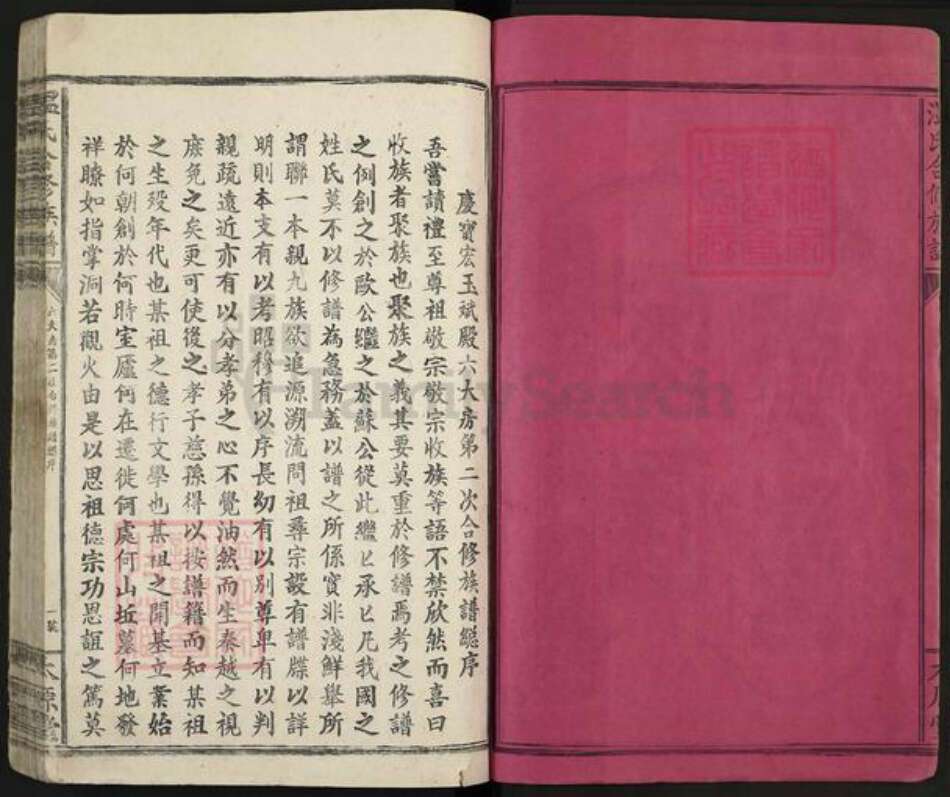 溫氏合修族譜
慶寶宏玉斌殿六大房第二次合修族譜總序
吾嘗讀禮至尊祖敬宗敬宗收族等語不禁欣然而喜曰
收族者聚族也聚族之義其要莫重於修譜焉考之修譜
之例創之於歐公繼之於蘇公從此繼匕承匕凡我國之
姓氏莫不以修譜為急務蓋以譜之所係實非淺鮮舉所
謂聯一本親九族欲追源溯流問祖尋宗設有譜牒以詳
明則本支有以考昭穆有以序長幼有以別尊卑有以判
親疏遠近亦有以分孝弟之心不覺油然而生秦越之視
庶免之矣更可使後之孝子慈孫得以按譜籍而知某祖
之生歿年代也某祖之德行文學也某祖之開基立業始
於何朝創於何時室廬何在遷徙何處何山坵墓何地發
祥瞭如指掌洞若觀火由是以思祖德宗功恩誼之篤莫
溫氏合修族譜
太原
FamilySearch